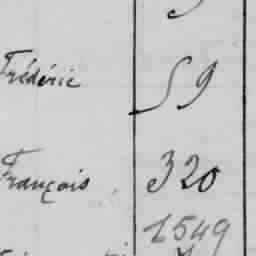 Frédéric 59
François 320
1549